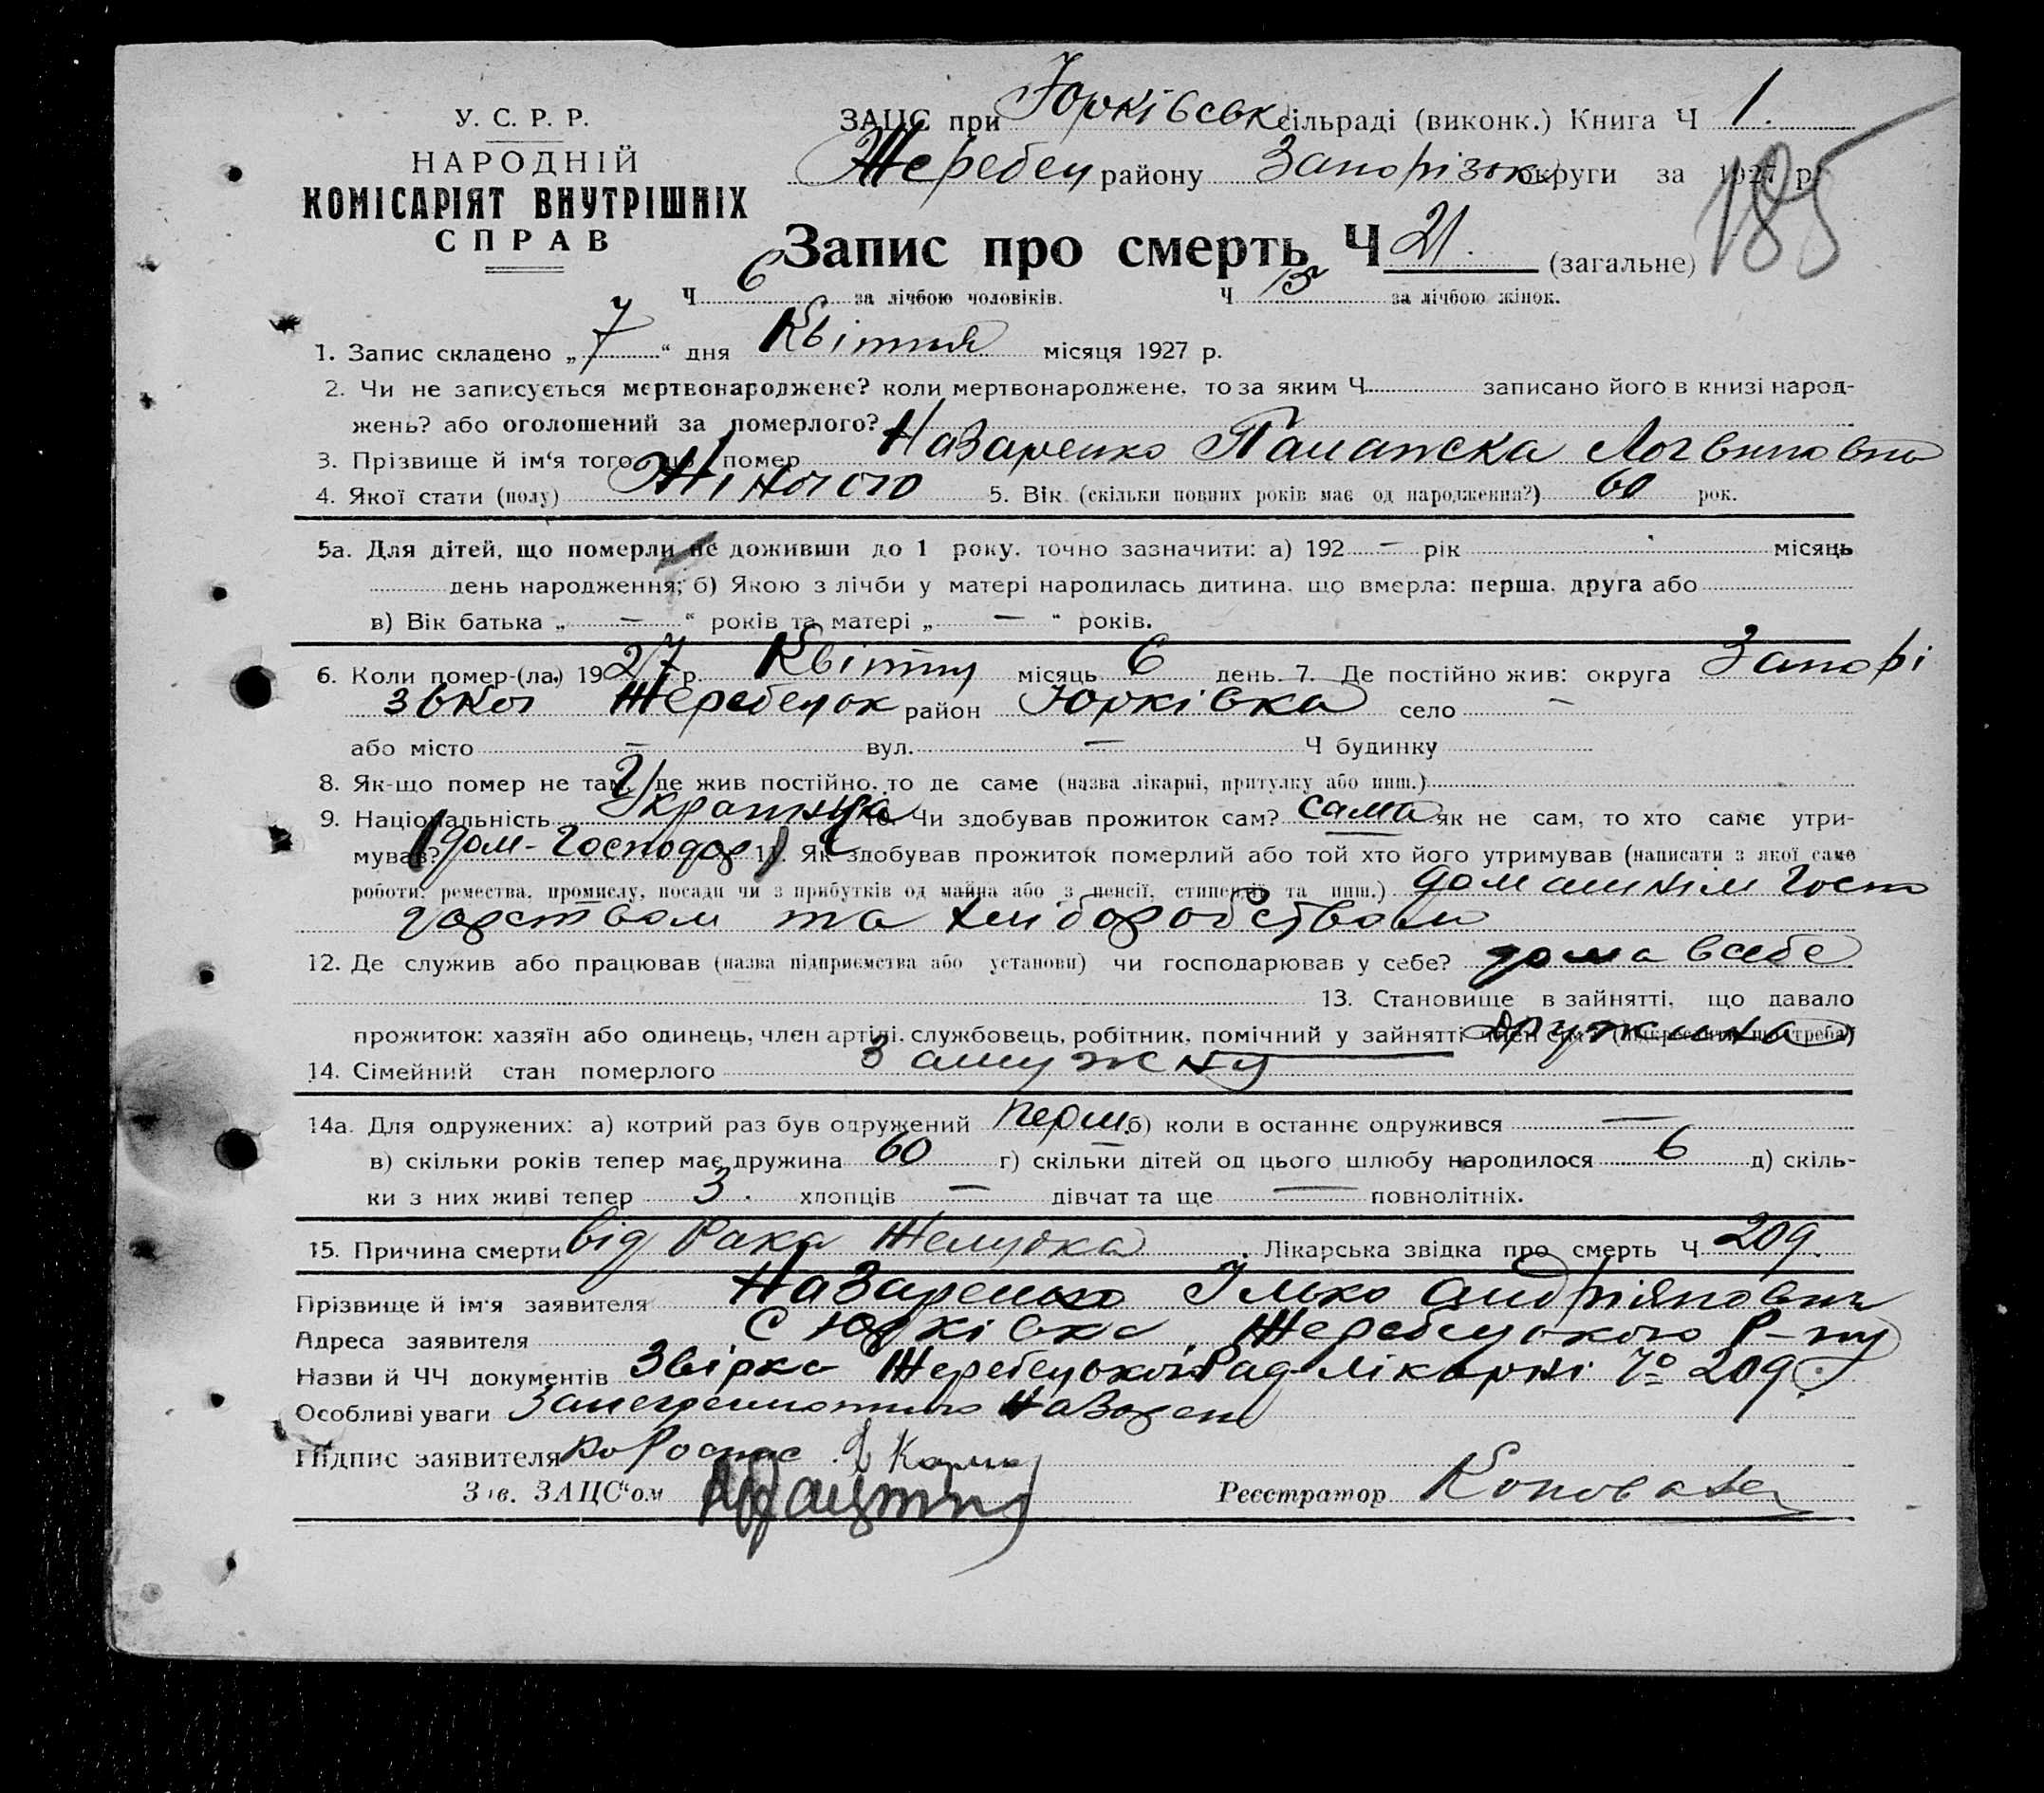 У. С. Р. Р.
НАРОДНІЙ
КОМІСАРІЯТ ВНУТРІШНІХ
СПРАВ
ЗАЦС при Юрківськ сільраді (виконк.) Книга Ч 1.
Жеребец району Запорізьк округи за 1927 р.
185
Запис про смерть Ч 21. (загальне)
Ч 6 за лічбою чоловіків. Ч 15 за лічбою жінок.
1. Запис складено „ 7 “ дня Квітня місяця 1927 р.
2. Чи не записується мертвонароджене? коли мертвонароджене, то за яким Ч записано його в книзі народ-
жень? або оголошений за померлого?
3. Прізвище й ім'я того, що помер Назаренко Палажка Логвиновна
4. Якої стати (полу) Жіночого 5. Вік (скільки повних років має од народження?) 60 рок.
5а. Для дітей, що померли не доживши до 1 року, точно зазначити: а) 192 — рік місяць
день народження; б) Якою з лічби у матері народилась дитина, що вмерла: перша, друга або
в) Вік батька „ — “ років та матері „ — “ років.
6. Коли помер-(ла) 1927 р. Квітня місяць 6 день. 7. Де постійно жив: округа Запорі
зької Жеребецьк район Юрківка село —
або місто — вул. — Ч будинку
8. Як-що помер не там, де жив постійно, то де саме (назва лікарні, притулку або инш.)
9. Національність Українка 10. Чи здобував прожиток сам? сама як не сам, то хто саме утри-
мував? (дом-господар) 11. Як здобував прожиток померлий або той хто його утримував (написати з якої саме
роботи, ремества, промислу, посади чи з прибутків од майна або з пенсії, стипендії та инш.) домашнім госпо
дарством та хліборобством
12. Де служив або працював (назва підприємства або установи) чи господарював у себе? дома в себе
13. Становище в зайнятті, що давало
прожиток: хазяїн або одинець, член артілі, службовець, робітник, помічний у зайнятті член сім'ї (підкреслити що треба) дружина
14. Сімейний стан померлого замужня
14а. Для одружених: а) котрий раз був одружений перш. б) коли в останнє одружився —
в) скільки років тепер має дружина 60 г) скільки дітей од цього шлюбу народилося 6 д) скіль-
ки з них живі тепер 3. хлопців — дівчат та ще — повнолітніх.
15. Причина смерти від Рака Желудка. Лікарська звідка про смерть Ч 209.
Прізвище й ім'я заявителя Назаренко Ілько Андріянович
Адреса заявителя С Юрківка Жеребецького Р-ну
Назви й ЧЧ документів Звірка Жеребецької Рад-лікарні № 209.
Особливі уваги
Підпис заявителя
Зав. ЗАЦС“ом Реєстратор Коновал